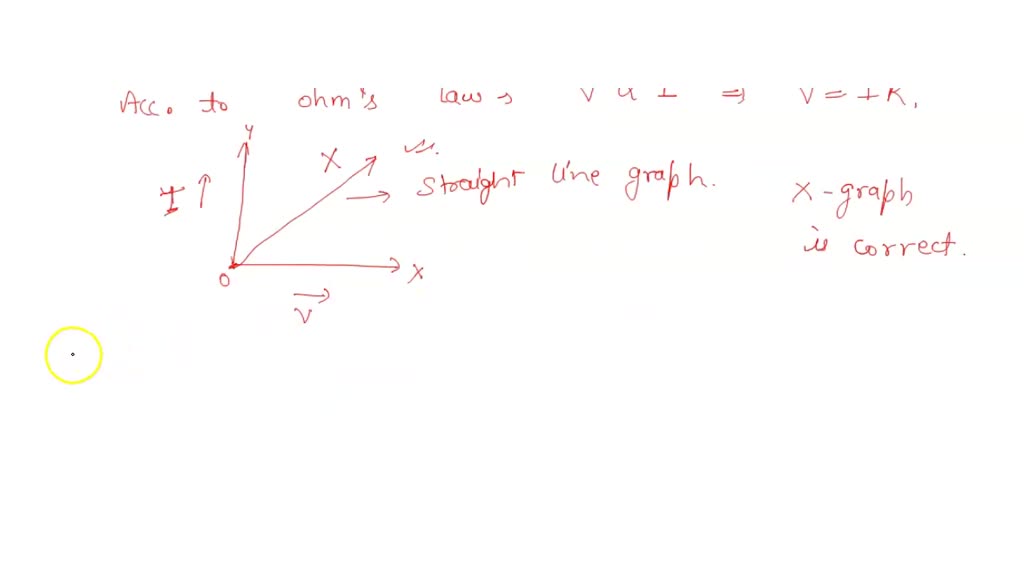 Acc. to ohm's law, V α I ⇒ V = IR.
Y
X
I ↑
Straight line graph.
X-graph
is correct.
O
X
V